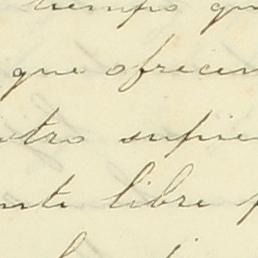 tiempo qu
que ofrecen
tro supie
nte libre p